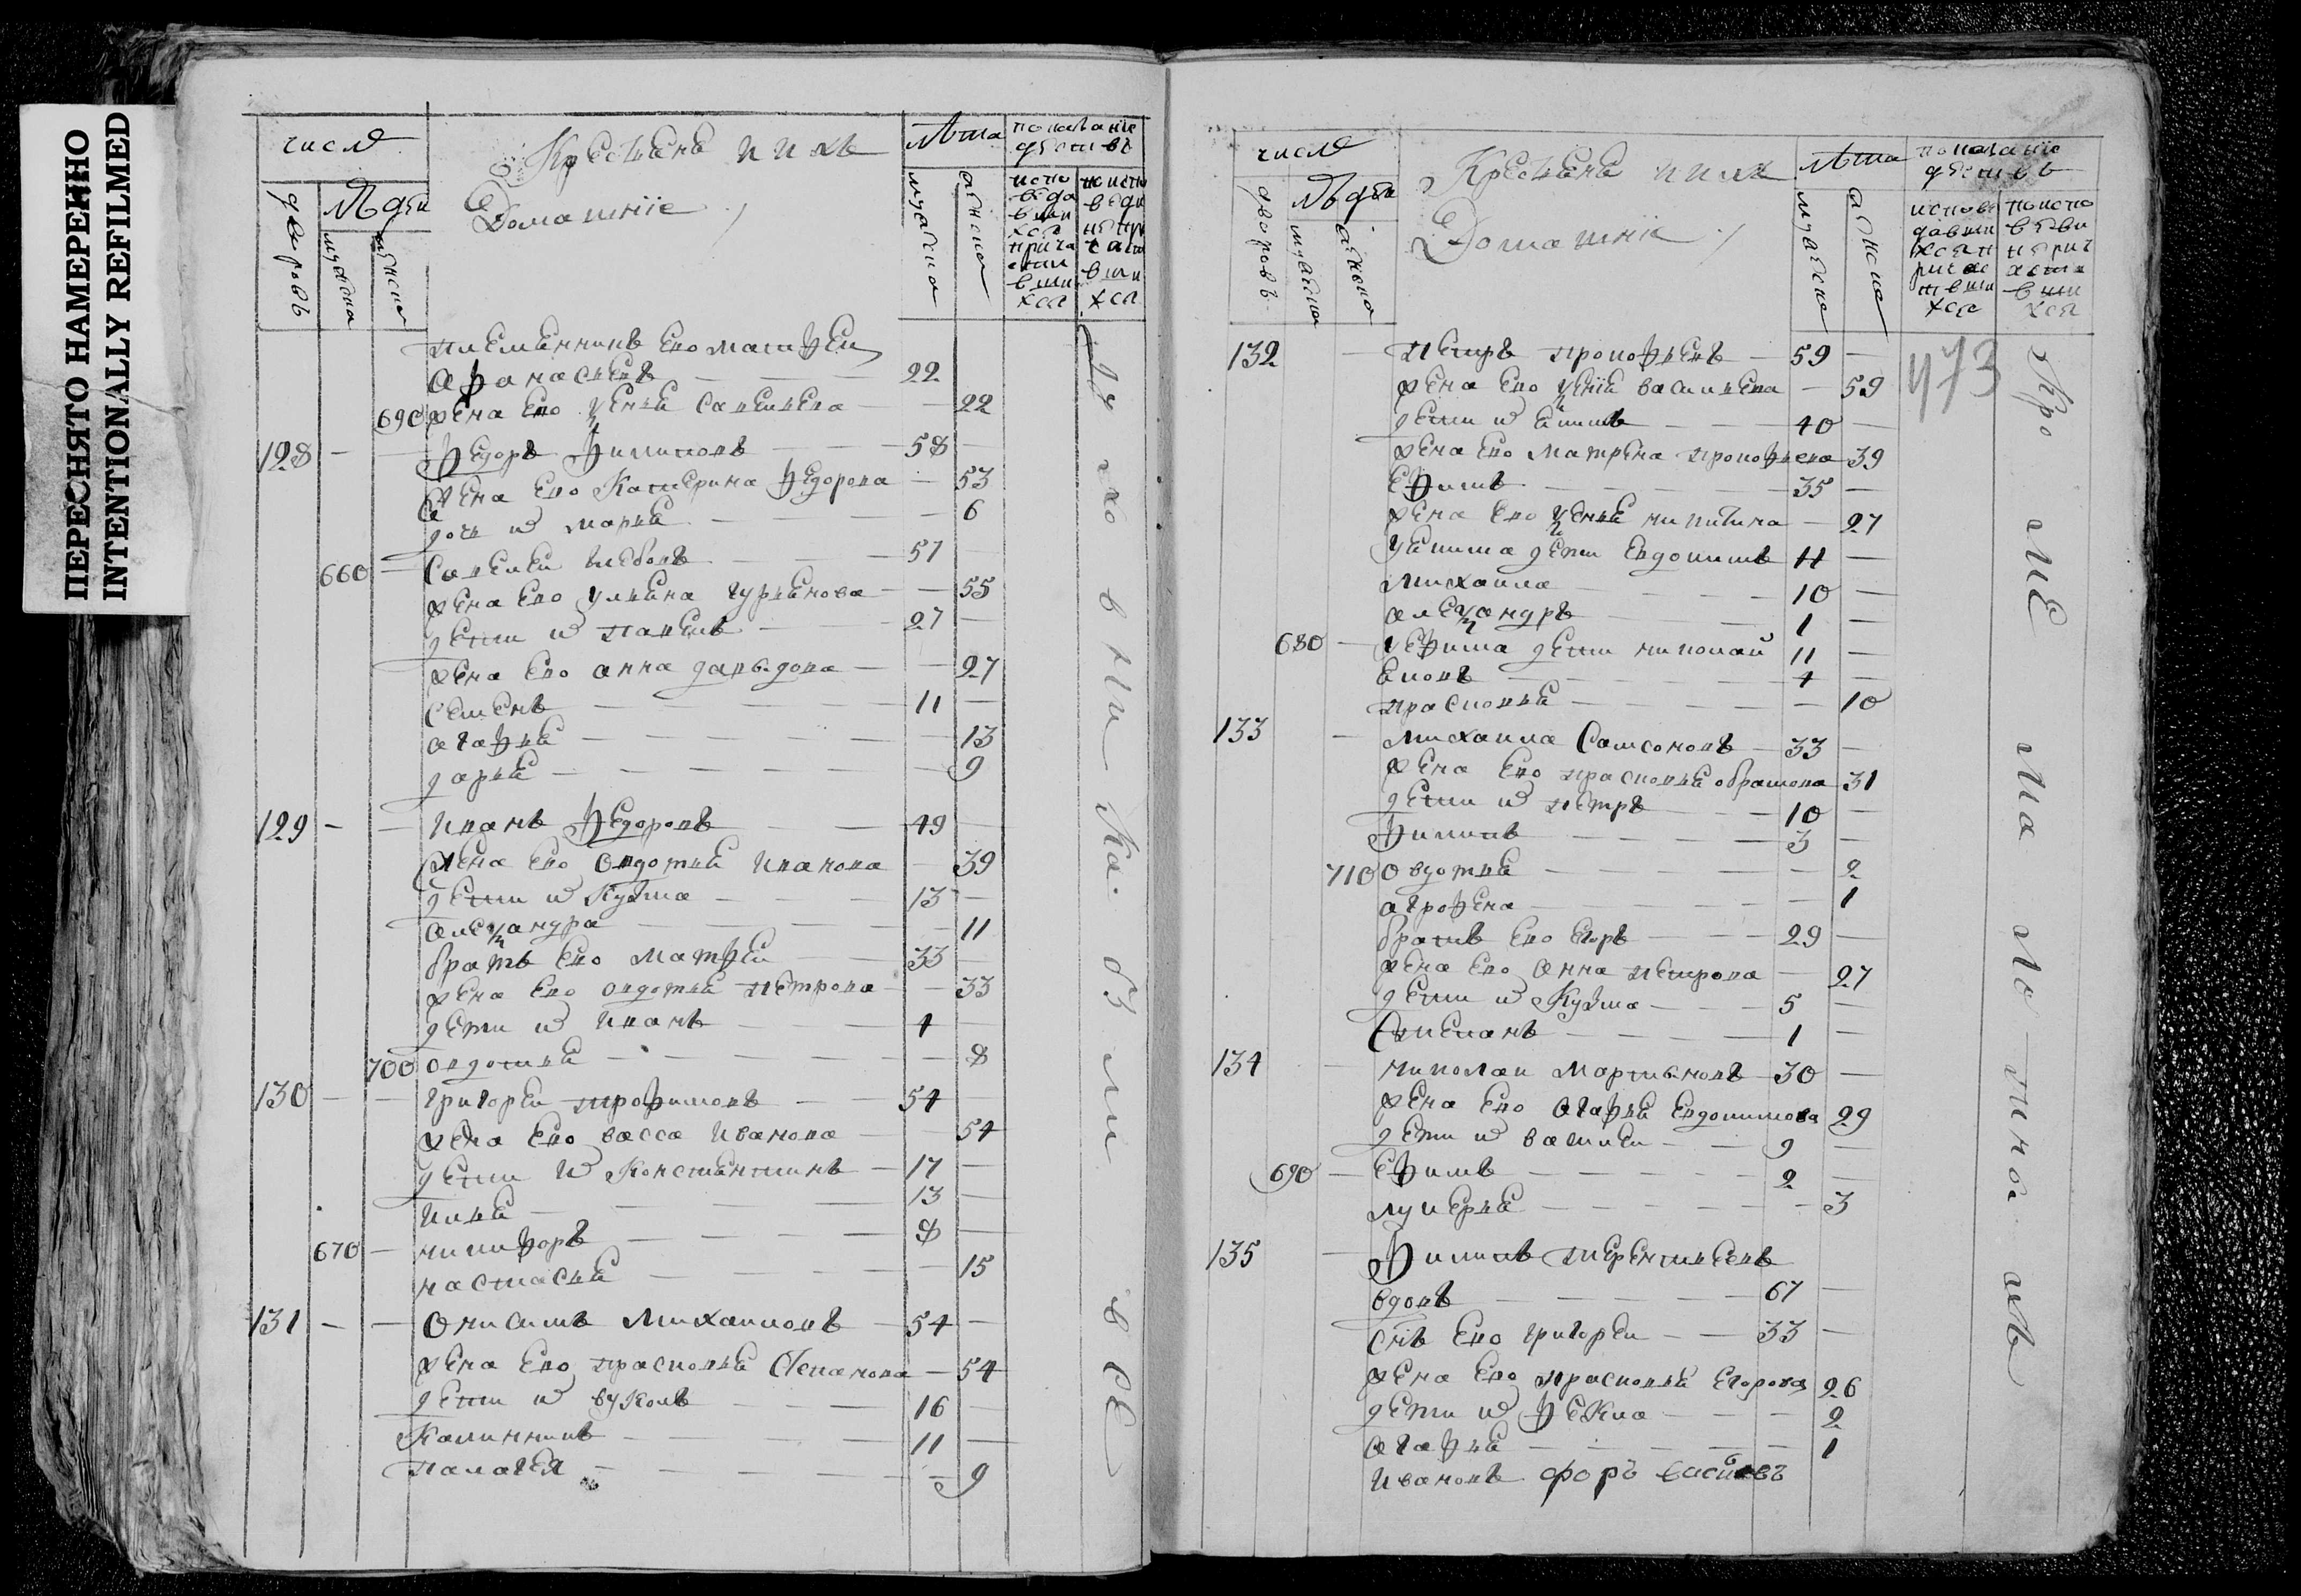 ПЕРЕСНЯТО НАМЕРЕННО
INTENTIONALLY REFILMED
число
дворовъ
людей
мужеска
женска
Крестьяне и ихъ
Домашніе
лѣта
мужеска
женска
показаніе
действъ
племянникъ ево матфеи
афанасьевъ 22
690 жена ево ѯенья савельева 22
128 федоръ филиповъ 58
жена ево Катерина федорова 53
дочь их марья 6
660 савелеи глебовъ 51
жена ево ульяна гурьянова 55
дети их павелъ 27
жена ево анна давыдова 27
семенъ 11
агафья 13
дарья 9
129 иванъ федоровъ 49
жена ево овдотья иванова 39
дети их кузма 13
алеѯандра 11
братъ ево матфеи 33
жена ево овдотья петрова 33
дети их иванъ 4
700 овдотья 8
130 григореи трофимовъ 54
жена ево васса иванова 54
дети их константинъ 17
илья 13
670 никифоръ 8
настасья 15
131 онисимъ михаиловъ 54
жена ево прасковья степанова 54
дети их вуколъ 16
калинникъ 11
палагея 9
число
дворовъ
людей
мужеска
женска
Крестьяне и ихъ
Домашніе
лѣта
мужеска
женска
показаніе
действъ
473
132 петръ прокофьевъ 59
жена ево ѯенія васильева 59
дети их екимъ 40
жена ево матрена прокофьева 39
ефимъ 35
жена ево ѯенья никитина 27
у екима дети евдокимъ 11
михаила 10
алеѯандръ 1
680 у ефима дети николай 11
яковъ 4
прасковья 10
133 михаила самсоновъ 33
жена ево прасковья абрамова 31
дети их петръ 10
филипъ 3
710 овдотья 2
аграфена 1
братъ ево егоръ 29
жена ево анна петрова 27
дети их кузма 5
степанъ 1
134 николаи мартыновъ 30
жена ево агафья евдокимова 29
дети их василеи 9
690 ефимъ 2
лукерья 3
135 филипъ терентьевъ
вдовъ 67
снъ ево григореи 33
жена ево прасковья егорова 26
дети их фекла 2
агафья 1
ивановъ